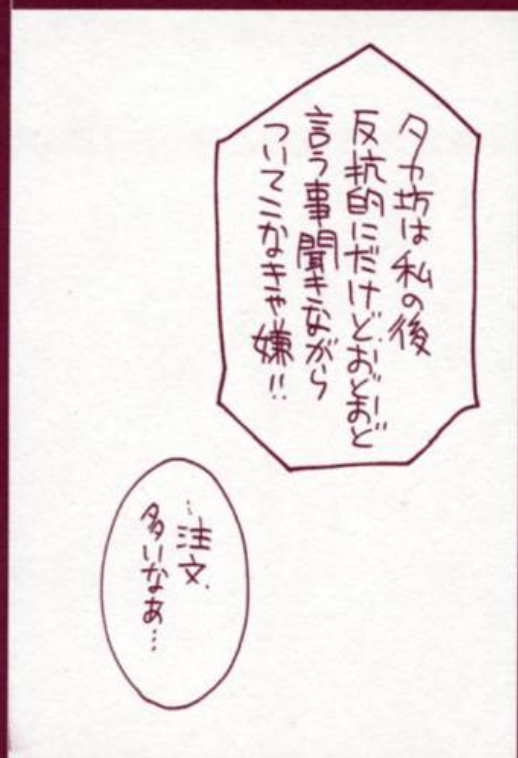 タカ坊は私の後
反抗的にだけどおどおど
言う事聞きながら
ついてこなきゃ嫌!!
…注文
多いなあ…